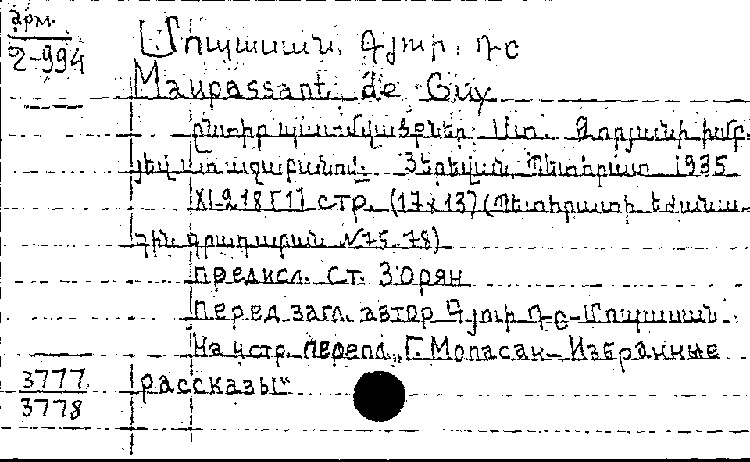 арм.
2-994
Մոպասան, Գյուի դը
Maupassant, de Guy
Ընտիր պատմվածքներ. Ստ. Զորյանի խմբ.
յեվ առաջաբանով. Յերեվան, Պետհրատ 1935
XI-218 [1] стр. (17x13) (Պետհրատի եժանա-
գին գրադարան №75-78)
предисл. Ст. Зорян
Перед загл. автор Գյուի դը-Մոպասան.
На 4 стр. перепл. „Г. Мопасан- Избранные
рассказы"
3777
3778